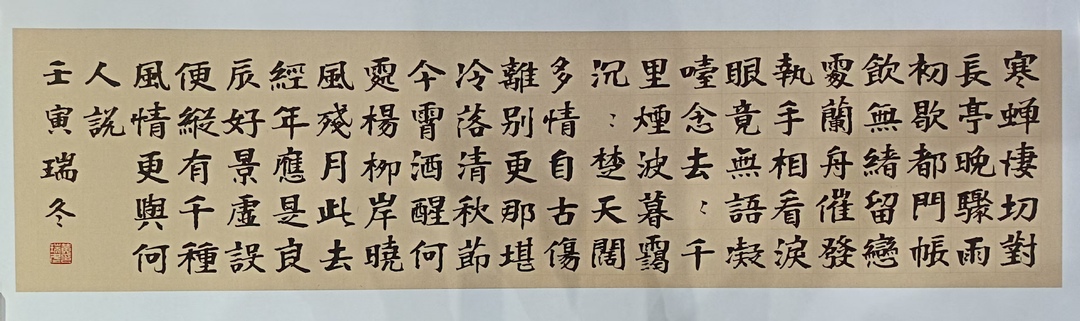 寒蟬悽切對
長亭晚驟雨
初歇都門帳
飲無緒留戀
處蘭舟催發
執手相看淚
眼竟無語凝
噎念去〻千
里煙波暮靄
沉〻楚天闊
多情自古傷
離別更那堪
冷落清秋節
今宵酒醒何
處楊柳岸曉
風殘月此去
經年應是良
辰好景虛設
便縱有千種
風情更與何
人説
壬寅瑞冬